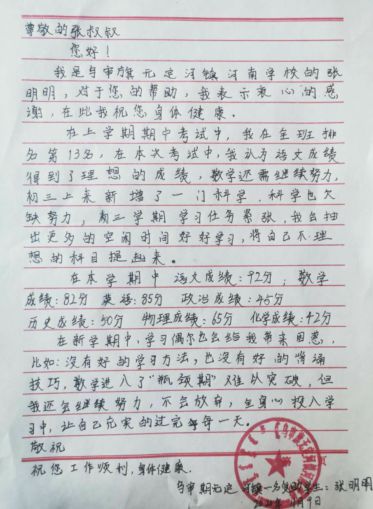 尊敬的张叔叔
您好!
我是乌审旗无定河镇河南学校的张
明明,对于您的帮助,我表示衷心的感
谢,在此我祝您身体健康.
在上学期期中考试中,我在全班排
名第13名,在本次考试中,我认为语文成绩
得到了理想的成绩,数学还需继续努力,
初三上来新增了一门科学,科学也欠
缺努力,初三学期学习任务紧张,我会抽
出更多的空闲时间好好学习,将自己不理
想的科目提起来。
在本学期中 语文成绩:92分,数学
成绩:82分 英语:85分 政治成绩:45分
历史成绩:50分 物理成绩:65分 化学成绩:42分
在新学期中,学习偶尔也会给我带来困惑,
比如:没有好的学习方法,也没有好的背诵
技巧,数学进入了“瓶颈期”难以突破,但
我还会继续努力,不会放弃,全身心投入学
习中,让自己充实的过完每每一天。
敬祝
祝您工作顺利,身体健康.
乌审旗无定河镇一名受助学生:张明明
月9日